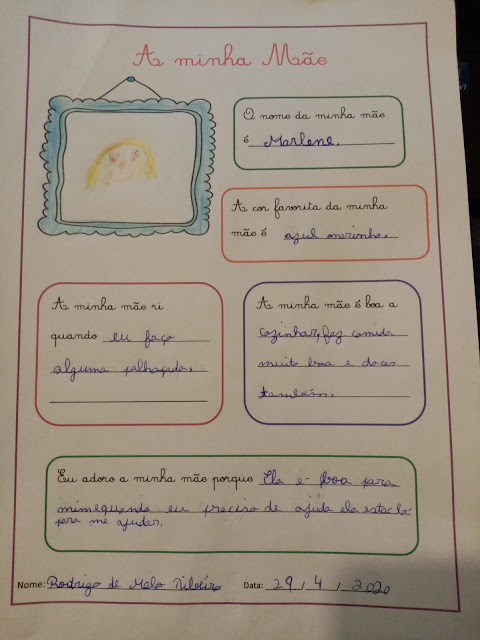 A minha Mãe
O nome da minha mãe
é Marlene.
A cor favorita da minha
mãe é azul marinho.
A minha mãe ri
quando eu faço
alguma palhaçada.
A minha mãe é boa a
cozinhar, faz comida
muito boa e doces
também.
Eu adoro a minha mãe porque Ela é boa para
mim equando eu preciso de ajuda ela esta lá
para me ajudar.
Nome: Rodrigo de Melo Ribeiro Data: 29/4/2020